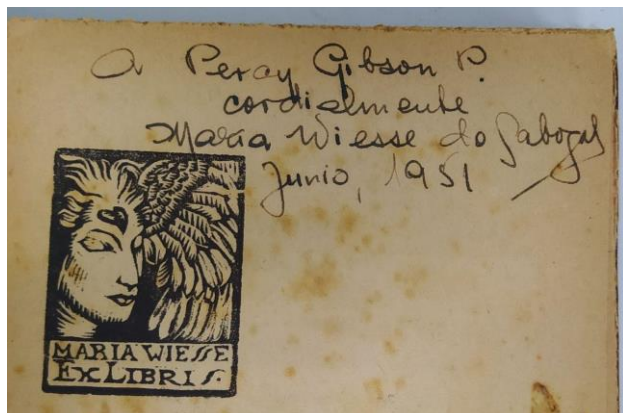 A Percy Gibson P.
cordialmente
María Wiesse de Sabogal
Junio, 1951
MARIA WIESSE
EX LIBRIS.